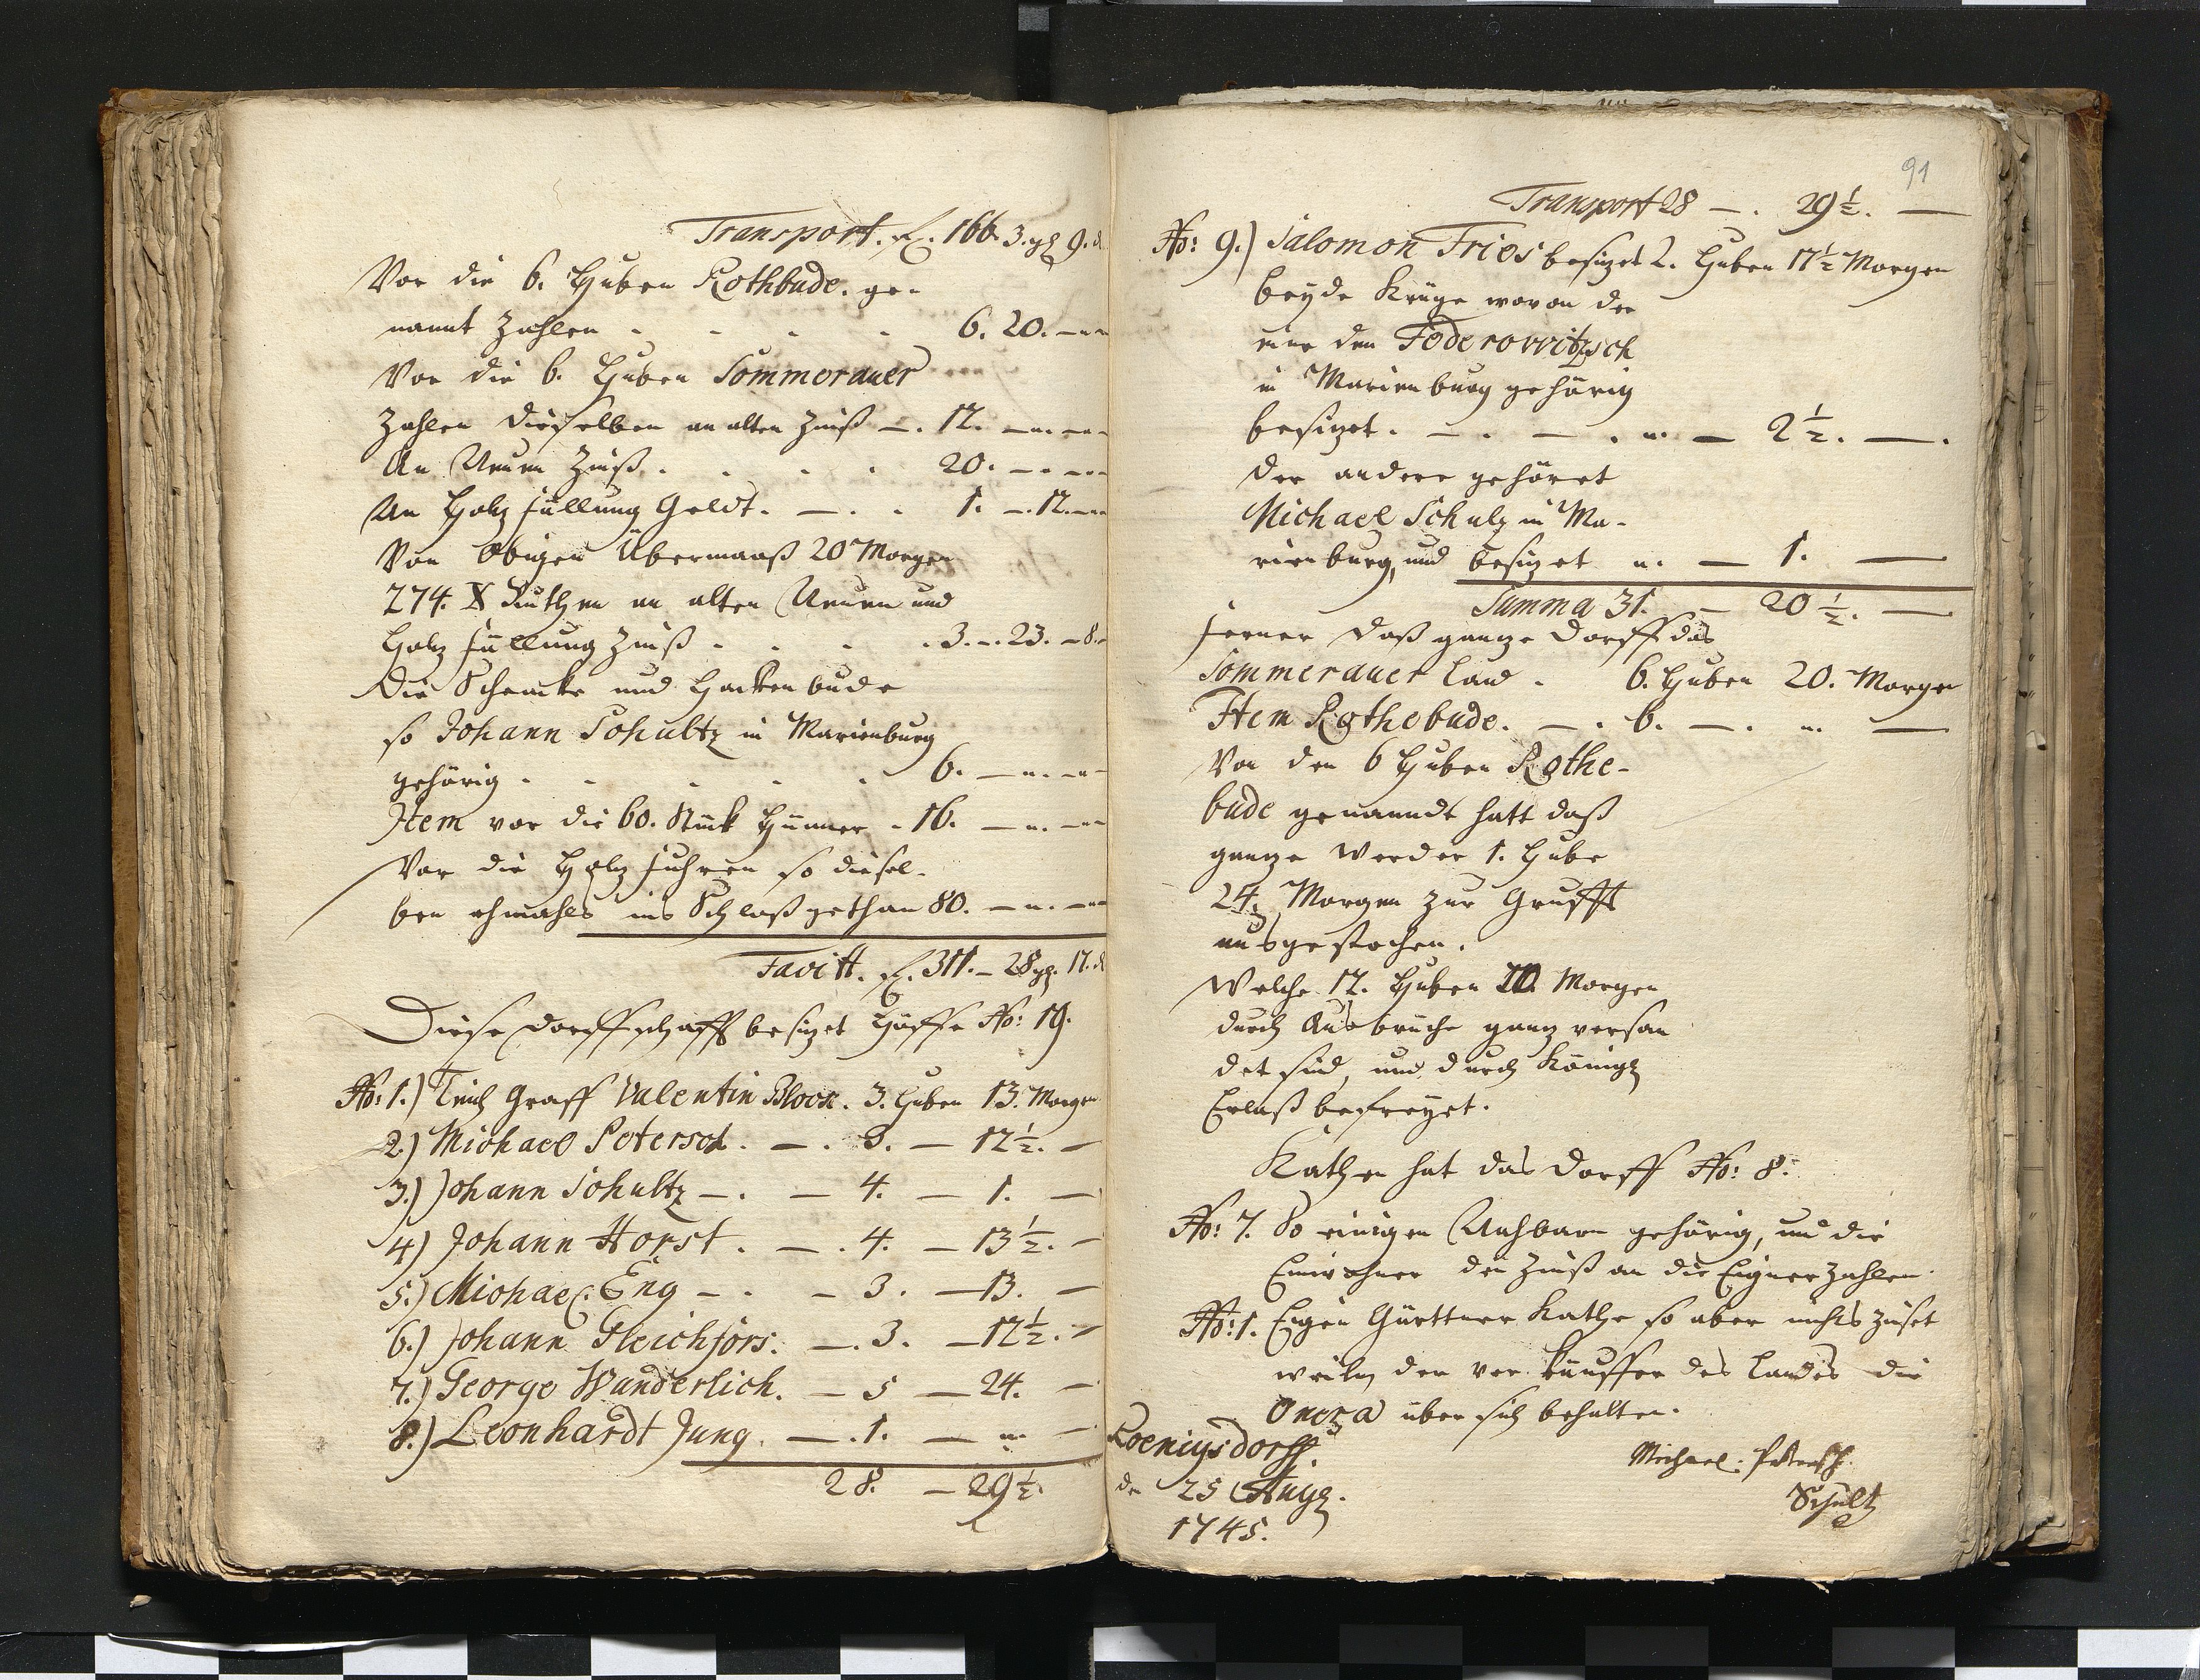 Transport. fl. 166. 3. gl 9. d
Vor die 6. Huben Rothbude. ge-
nannt zahlen - - - - 6. 20. —
Vor die 6. Huben Sommerauer
zahlen dieselben an alten Zinß —. 12. —
An Neuen Zinß . . . . 20. —
An Holtz fällung Geldt. — . . 1. —. 12. —
Von Obigen Übermaaß 20 Morgen
274. Ruthen an alten Neuen und
Holtz fällung Zinß . . . . 3. —. 23. — 8.
Die Schencke und Hackenbude
so Johann Schultz in Marienburg
gehörig . - - - - 6. —
Item vor die 60. Stück Hünner - 16. —
Vor die Holtz fuhren so diesel-
ben ehmahls ins Schloß gethan 80. —
Facitt. fl. 311. — 28 gl. 17. d
Diese Dorffschafft besizet Höffe No: 19.
No: 1.) Teich Graff Valentin Block. 3. Huben 13. Morgen
2.) Michael Petersch. — . 3. — 12 ½. —
3.) Johann Schultz — . — 4. — 1. —
4) Johann Horst. — . 4. — 13 ½. —
5.) Michael Eng — . — 3. — 13. —
6.) Johann Gleichförs. — . 3. — 12 ½. —
7.) George Wunderlich. — 5 — 24. —
8.) Leonhardt Jung. — . 1. — „ —
28. — 29 ½
91
Transport 28 — . 29 ½. —
No: 9.) Salomon Fries besizet 2. Huben 17 ½ Morgen
beyde Krüge wovon der
eine den Foderowitzsch
in Marienburg gehörig
besizet. — . — . „ — 2 ½. — .
der andere gehöret
Michael Schulz in Ma-
rienburg, und besizet „. — 1. —
Summa 31. — 20 ½. —
ferner daß gantze Dorff das
Sommerauer Land - 6. Huben 20. Morgen
Item Rothebude. — . 6. — . „ —
Von den 6 Huben Rothe-
bude genanndt hatt daß
gantze Werder 1. Hube
24. Morgen zur Grufft
ausgestochen.
Welche 12. Huben 20. Morgen
durch Ausbrüche gantz versan
det sind, und durch Königl
Erlaß befreyet.
Kathen hat das Dorff No: 8.
No: 7. So einigen Nachbarn gehörig, und die
Einwohner den Zinß an die Eigner zahlen.
No: 1. Eigen Gärttner Kathe so aber nichts zinset
weiln der verkäuffer des Landes die
Onera über sich behalten.
Koenigsdorff.
de 25 Aug.
1745.
Michael: Petersch.
Schultz